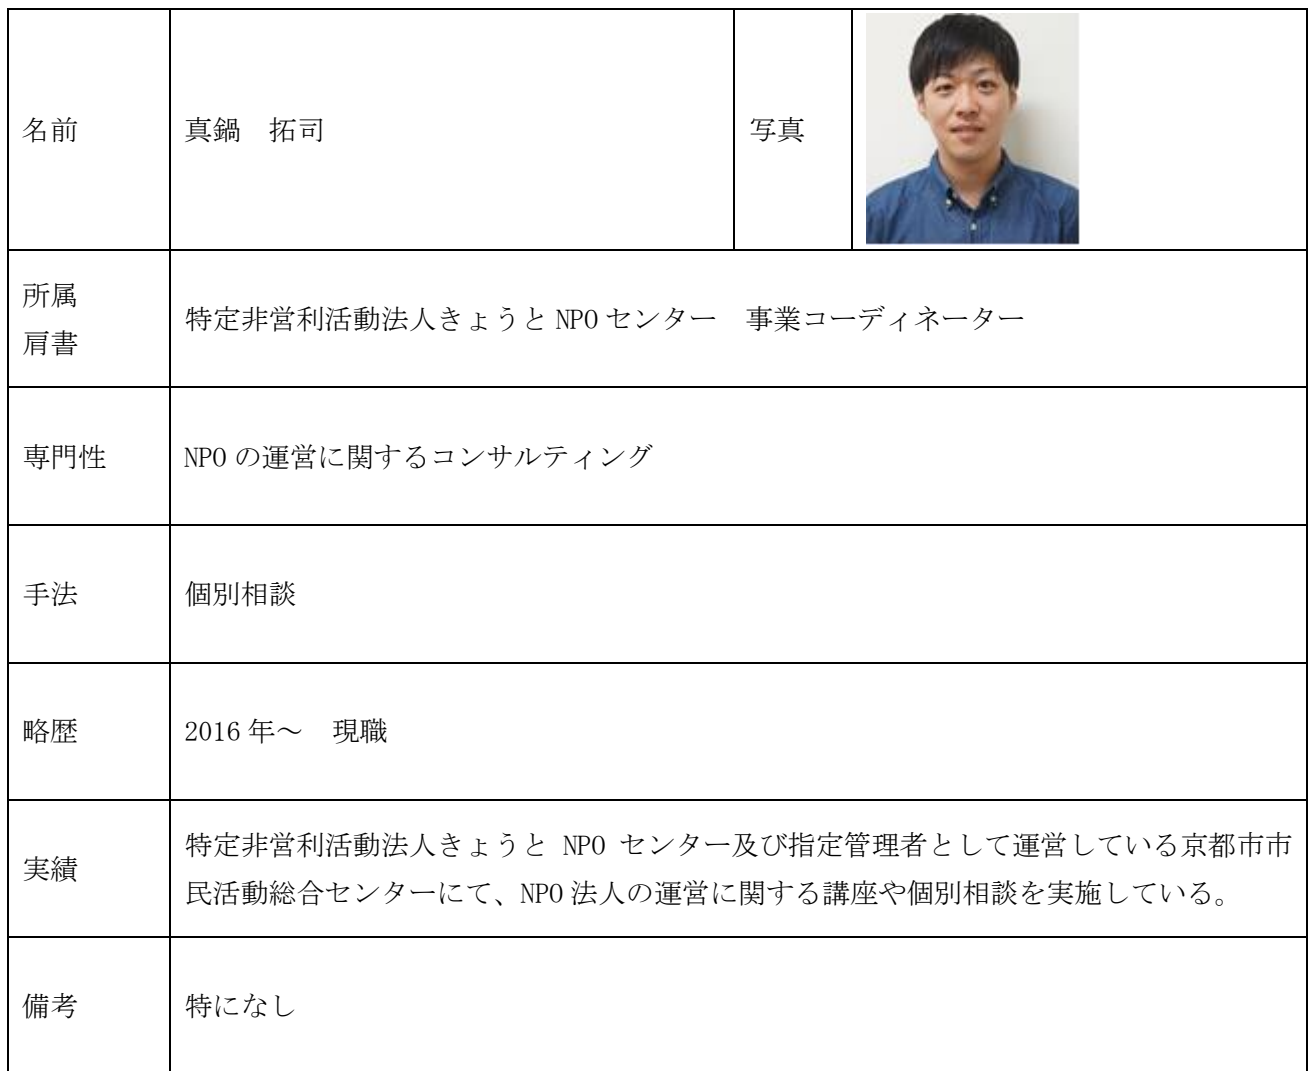 名前
真鍋　拓司
写真
所属
肩書
特定非営利活動法人きょうと NPO センター　事業コーディネーター
専門性
NPO の運営に関するコンサルティング
手法
個別相談
略歴
2016 年～　現職
実績
特定非営利活動法人きょうと NPO センター及び指定管理者として運営している京都市市
民活動総合センターにて、NPO 法人の運営に関する講座や個別相談を実施している。
備考
特になし